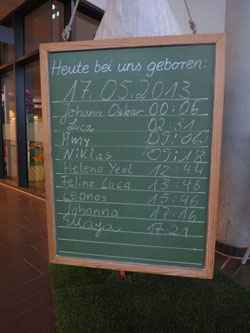 Heute bei uns geboren:
17.05.2013
Johann Oskar 00:06
Luca 02:31
Amy 09:06
Niklas 09:18
Helene Yeol 12:44
Felino Luca 13:46
Leonos 15:16
Johanna 17:16
Maya 17:21